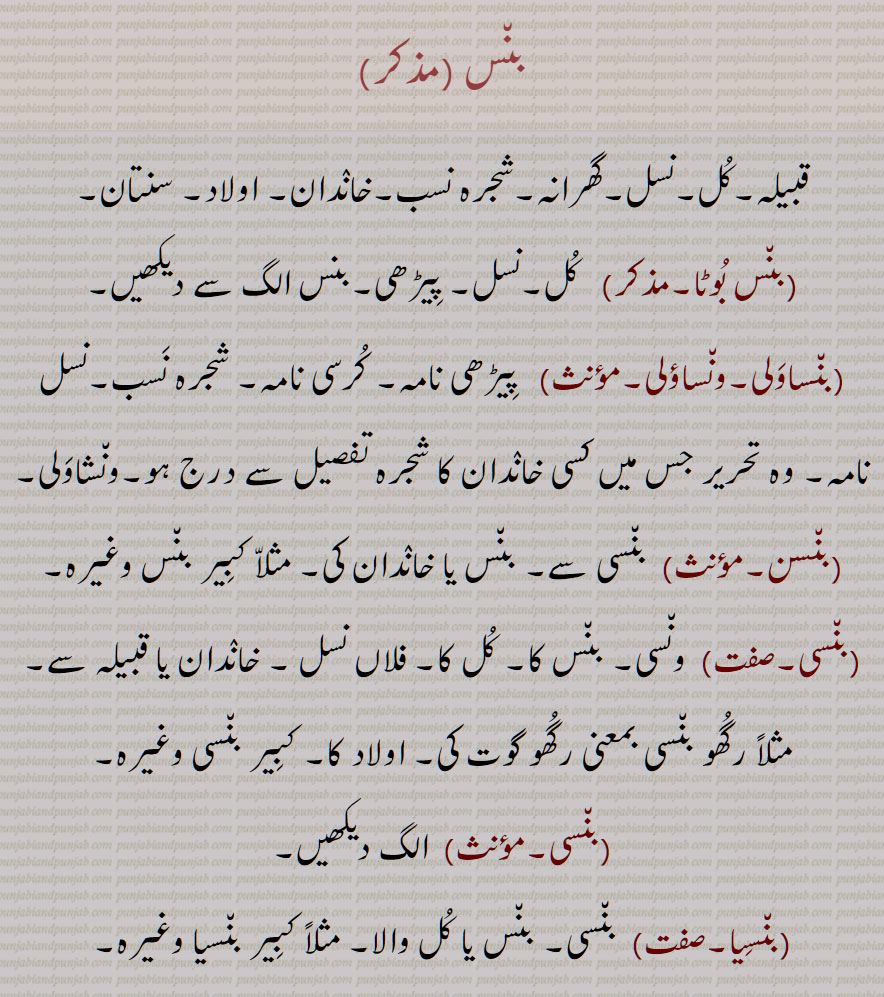 بنّس (مذکر)
قبیلہ۔ کُل۔ نسل۔ گھرانہ۔ شجرہ نسب۔ خانٛدان۔ اولاد۔ سنتان۔
(بنّس بُوٹا۔مذکر) کُل۔ نسل۔ پِیڑھی۔ بنس الگ سے دیکھیں۔
(بنّساوَلی۔ ونّساؤلی۔ مؤنث) پِیڑھی نامہ۔ کُرسی نامہ۔ شجرہ نَسب۔ نسل
نامہ۔ وہ تحریر جس میں کسی خانٛدان کا شجرہ تفصیل سے درج ہو۔ ونّشاوَلی۔
(بنّسن۔ مؤنث) بنّسی سے۔ بنّس یا خانٛدان کی۔ مثلاّ کبِیر بنّس وغیرہ۔
(بنّسی۔ صفت) ونّسی۔ بنّس کا۔ کُل کا۔ فلاں نسل ۔ خانٛدان یا قبیلہ سے۔
مثلاً رگُھو بنّسی بمعنی رگُھو گوت کی۔ اولاد کا۔ کبِیر بنّسی وغیرہ۔
(بنّسی۔ مؤنث) الگ دیکھیں۔
(بنّسِیا۔ صفت) بنّسی۔ بنّس یا کُل والا۔ مثلاً کبِیر بنّسیا وغیرہ۔
punjabiandpunjab com